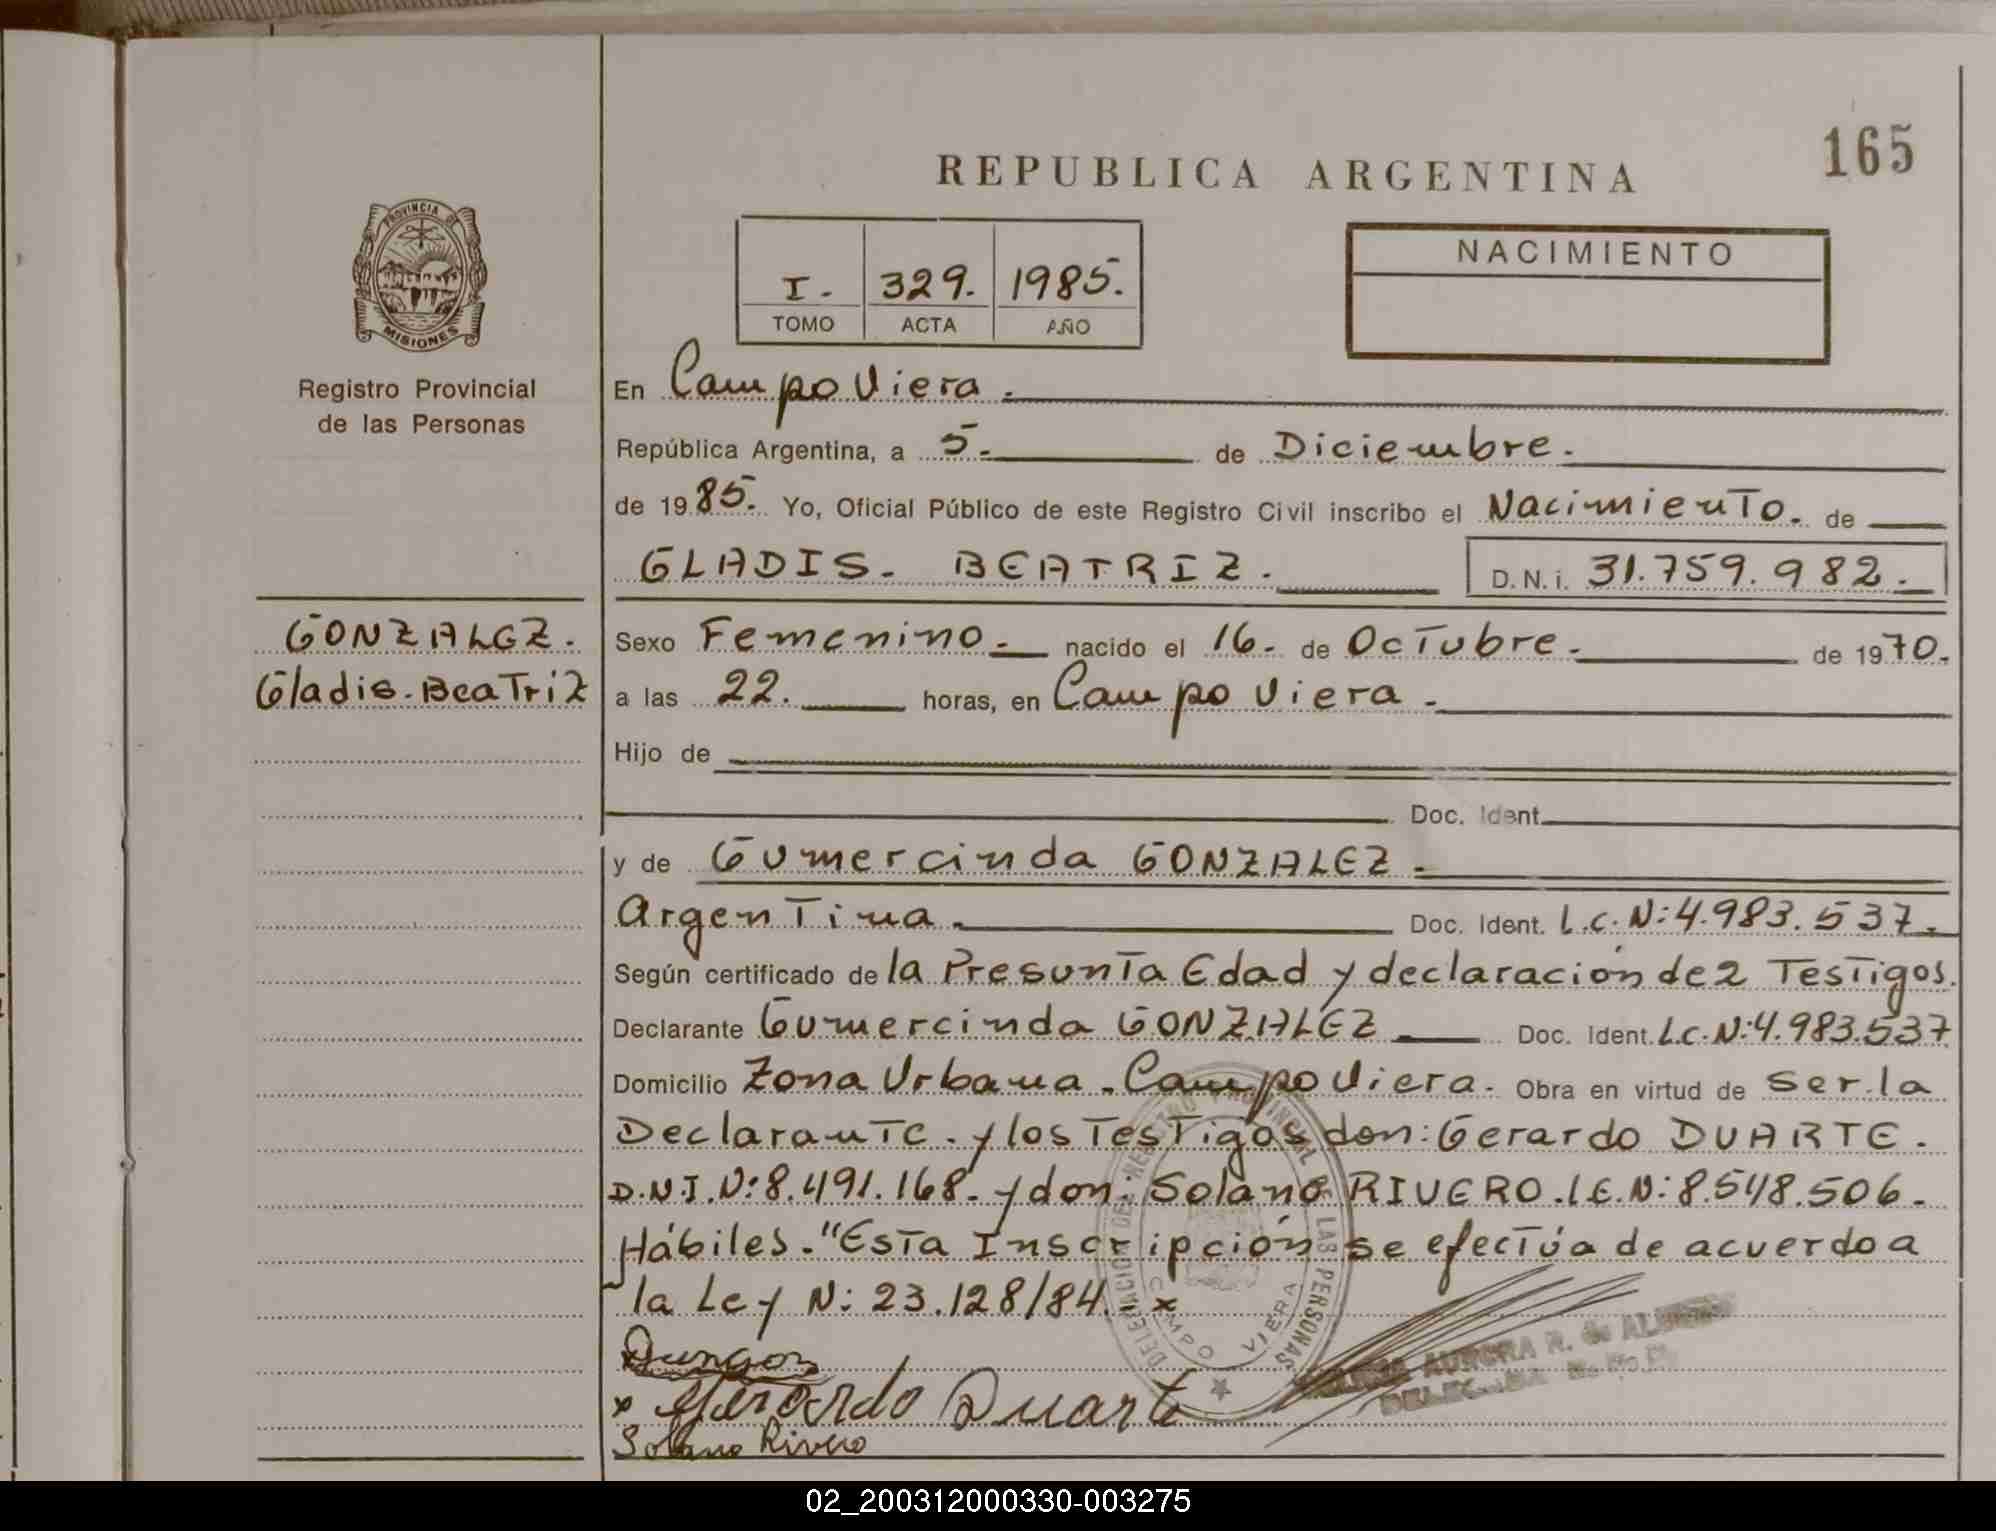 165
REPUBLICA ARGENTINA
PROVINCIA DE
MISIONES
Registro Provincial
de las Personas
I. 329. 1985.
TOMO ACTA AÑO
NACIMIENTO
En Campo Viera.
República Argentina, a 5. de Diciembre.
de 1985. Yo, Oficial Público de este Registro Civil inscribo el Nacimiento. de
GLADIS. BEATRIZ. D.N.i. 31.759.982.
GONZALEZ.
Gladis. Beatriz
Sexo Femenino. nacido el 16. de Octubre. de 1970.
a las 22. horas, en Campo Viera.
Hijo de
Doc. Ident.
y de Gumercinda GONZALEZ.
Argentina. Doc. Ident. L.C. N: 4.983.537.
Según certificado de la Presunta Edad y declaración de 2 Testigos.
Declarante Gumercinda GONZALEZ Doc. Ident. L.C. N: 4.983.537
Domicilio Zona Urbana. Campo Viera. Obra en virtud de ser la
Declarante. y los Testigos don: Gerardo DUARTE.
D.N.I. N: 8.491.168. y don: Solano RIVERO. L.E. N: 8.548.506.
Hábiles. "Esta Inscripción se efectúa de acuerdo a
la Ley N: 23.128/84. x
DELEGACION DEL REGISTRO PROVINCIAL DE LAS PERSONAS
CAMPO VIERA
AURORA R. de
x Gerardo Duarte
Solano Rivero
02_200312000330-003275